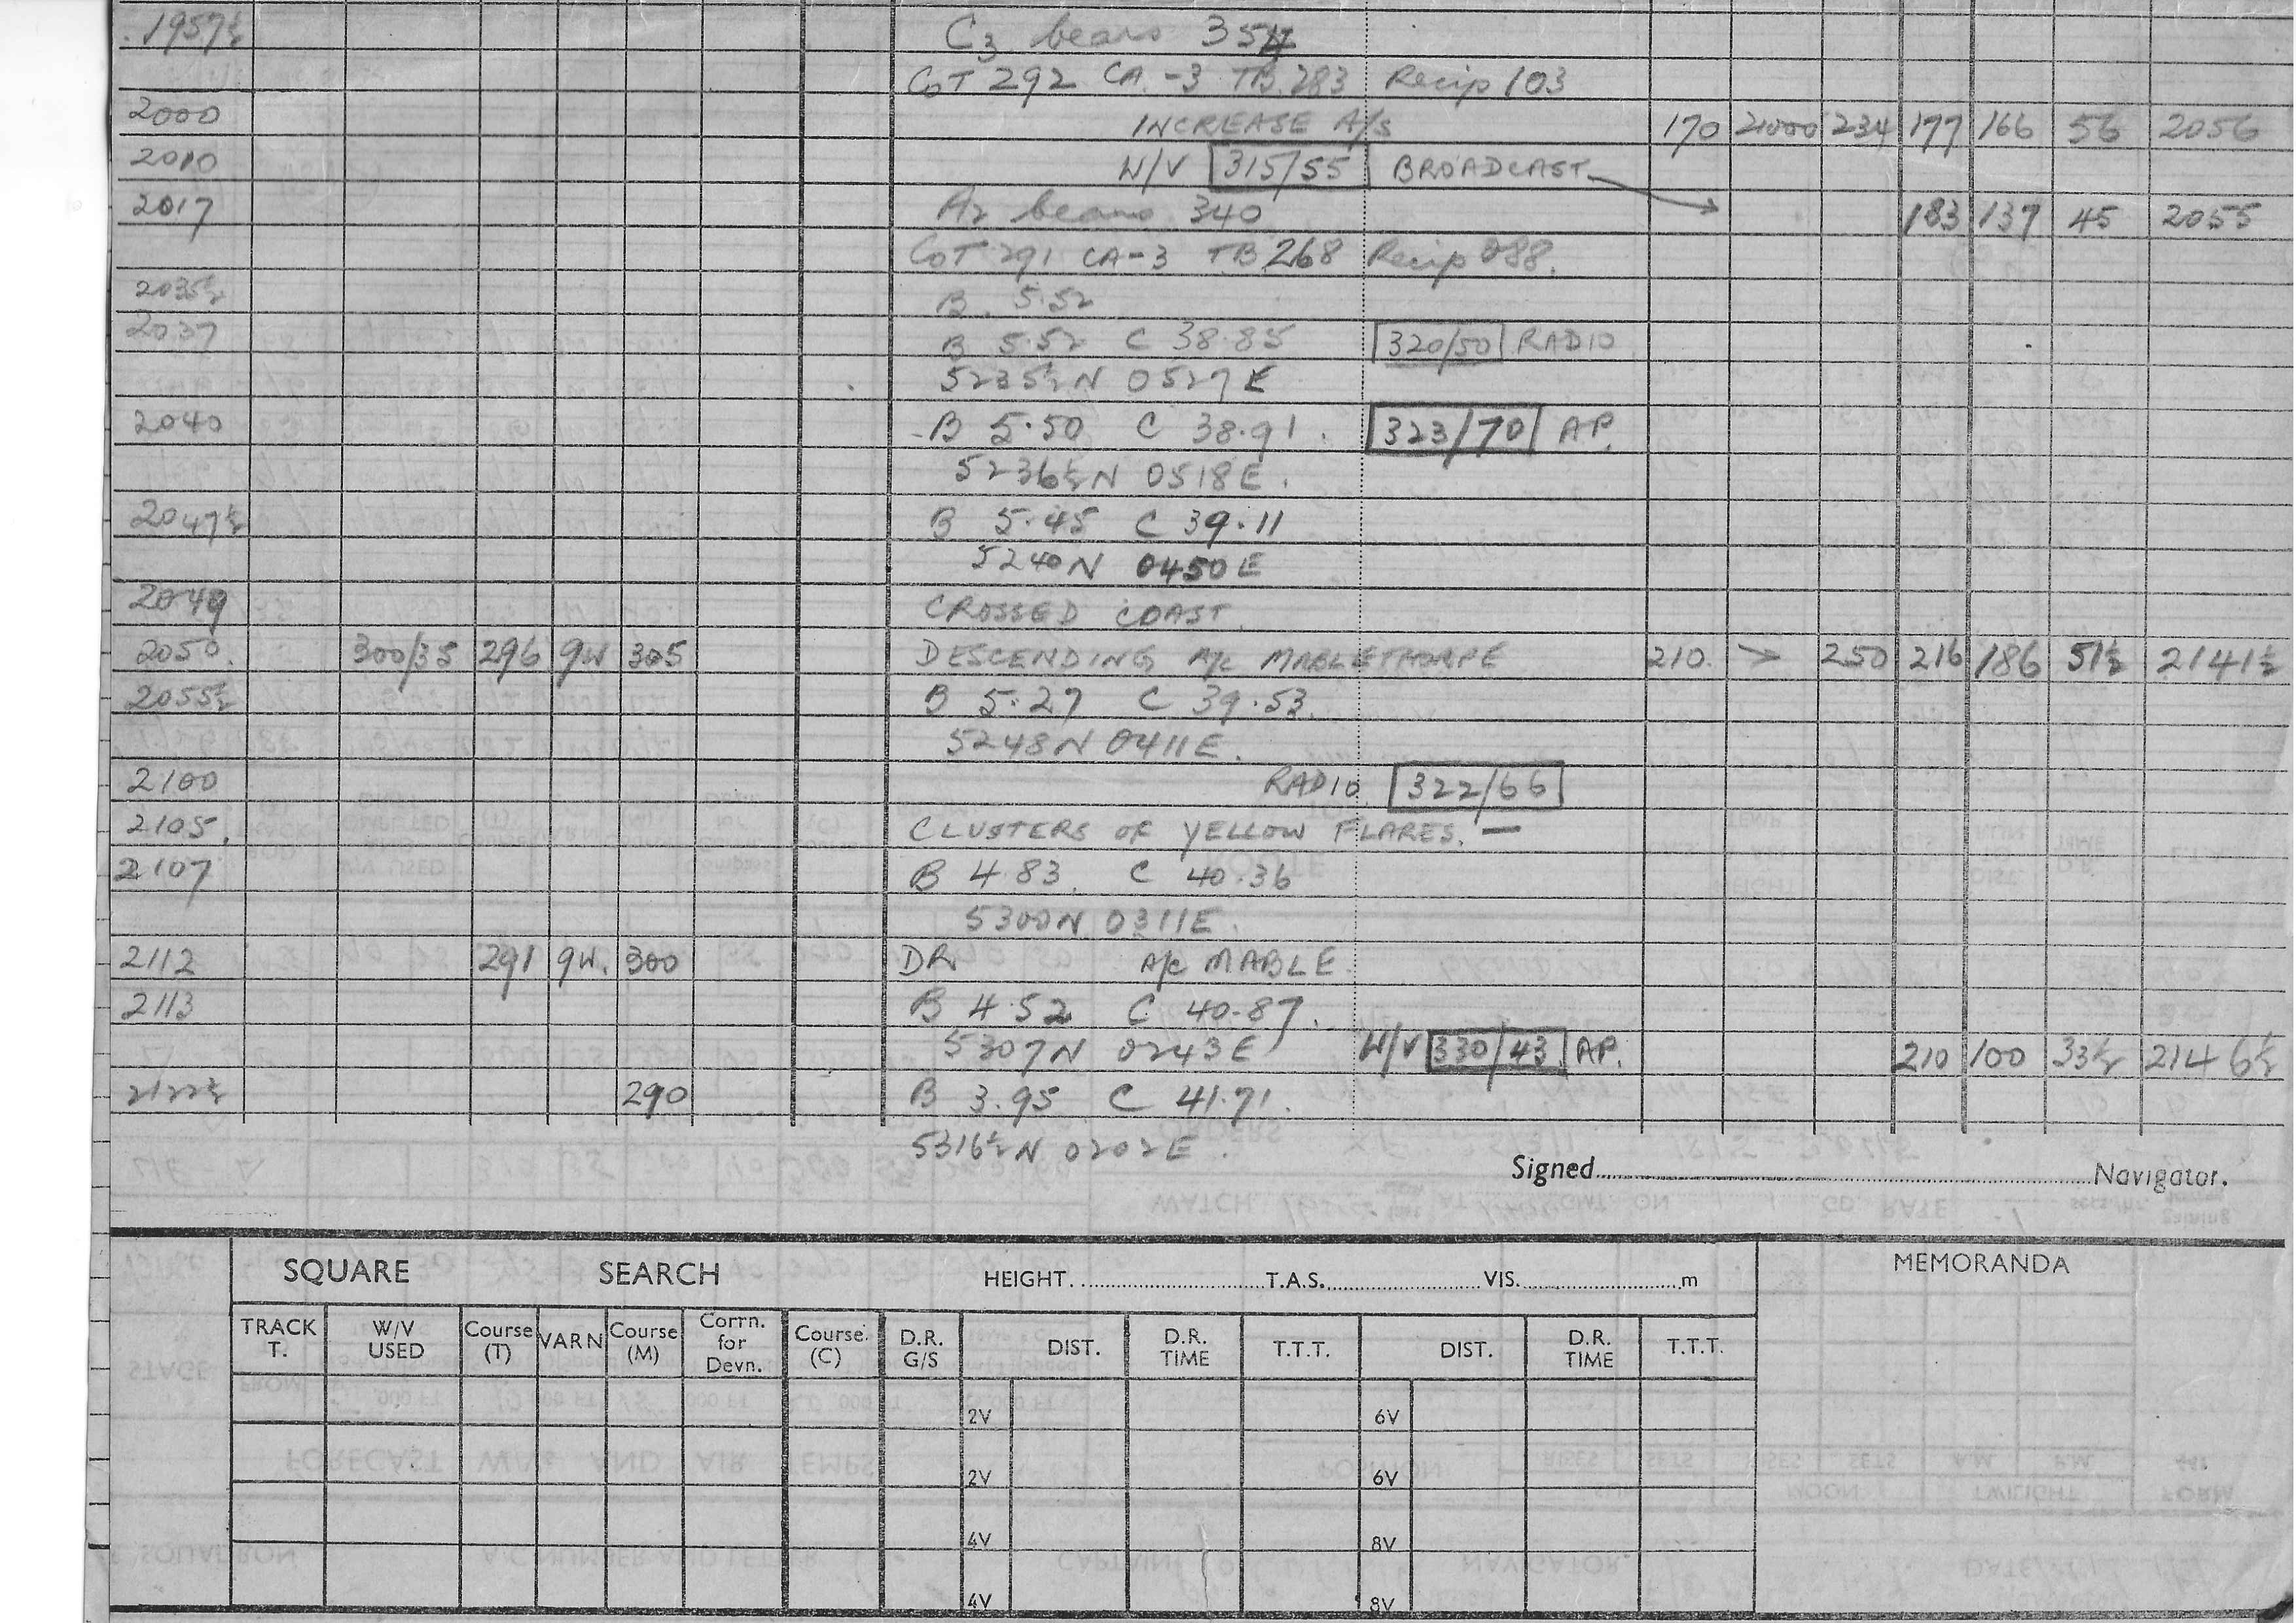 1957½ C3 bears 354
CoT 292 CA. -3 TB. 283 Recip 103
2000 INCREASE A/S 170 21000 234 177 166 56 2056
2010 W/V 315/55 BROADCAST
2017 A2 bears 340 183 137 45 2055
CoT 291 CA -3 TB 268 Recip 088.
2035½ B. 5.52
2037 B 5.52 C 38.85 320/50 RADIO
5235½N 0527E
2040 B 5.50 C 38.91. 323/70 AP.
5236½N 0518E.
2047½ B 5.45 C 39.11
5240N 0450E
2049 CROSSED COAST.
2050. 300/35 296 9W 305 DESCENDING A/c MABLETHORPE 210. > 250 216 186 51½ 2141½
2055½ B 5.27 C 39.53.
5248N 0411E.
2100 RADIO 322/66
2105. CLUSTERS OF YELLOW FLARES. —
2107 B 4.83. C 40.36
5300N 0311E.
2112 291 9W. 300 DR A/c MABLE.
2113 B 4.52 C 40.87.
5307N 0243E W/V 330/43 AP. 210 100 33½ 2146½
2122½ 290 B 3.95 C 41.71.
5316½N 0202E.
Signed Navigator.
SQUARE SEARCH HEIGHT. T.A.S. VIS. m MEMORANDA
TRACK T. W/V USED Course (T) VARN Course (M) Corrn. for Devn. Course. (C) D.R. G/S DIST. D.R. TIME T.T.T. DIST. D.R. TIME T.T.T.
2V 6V
2V 6V
4V 8V
4V 8V